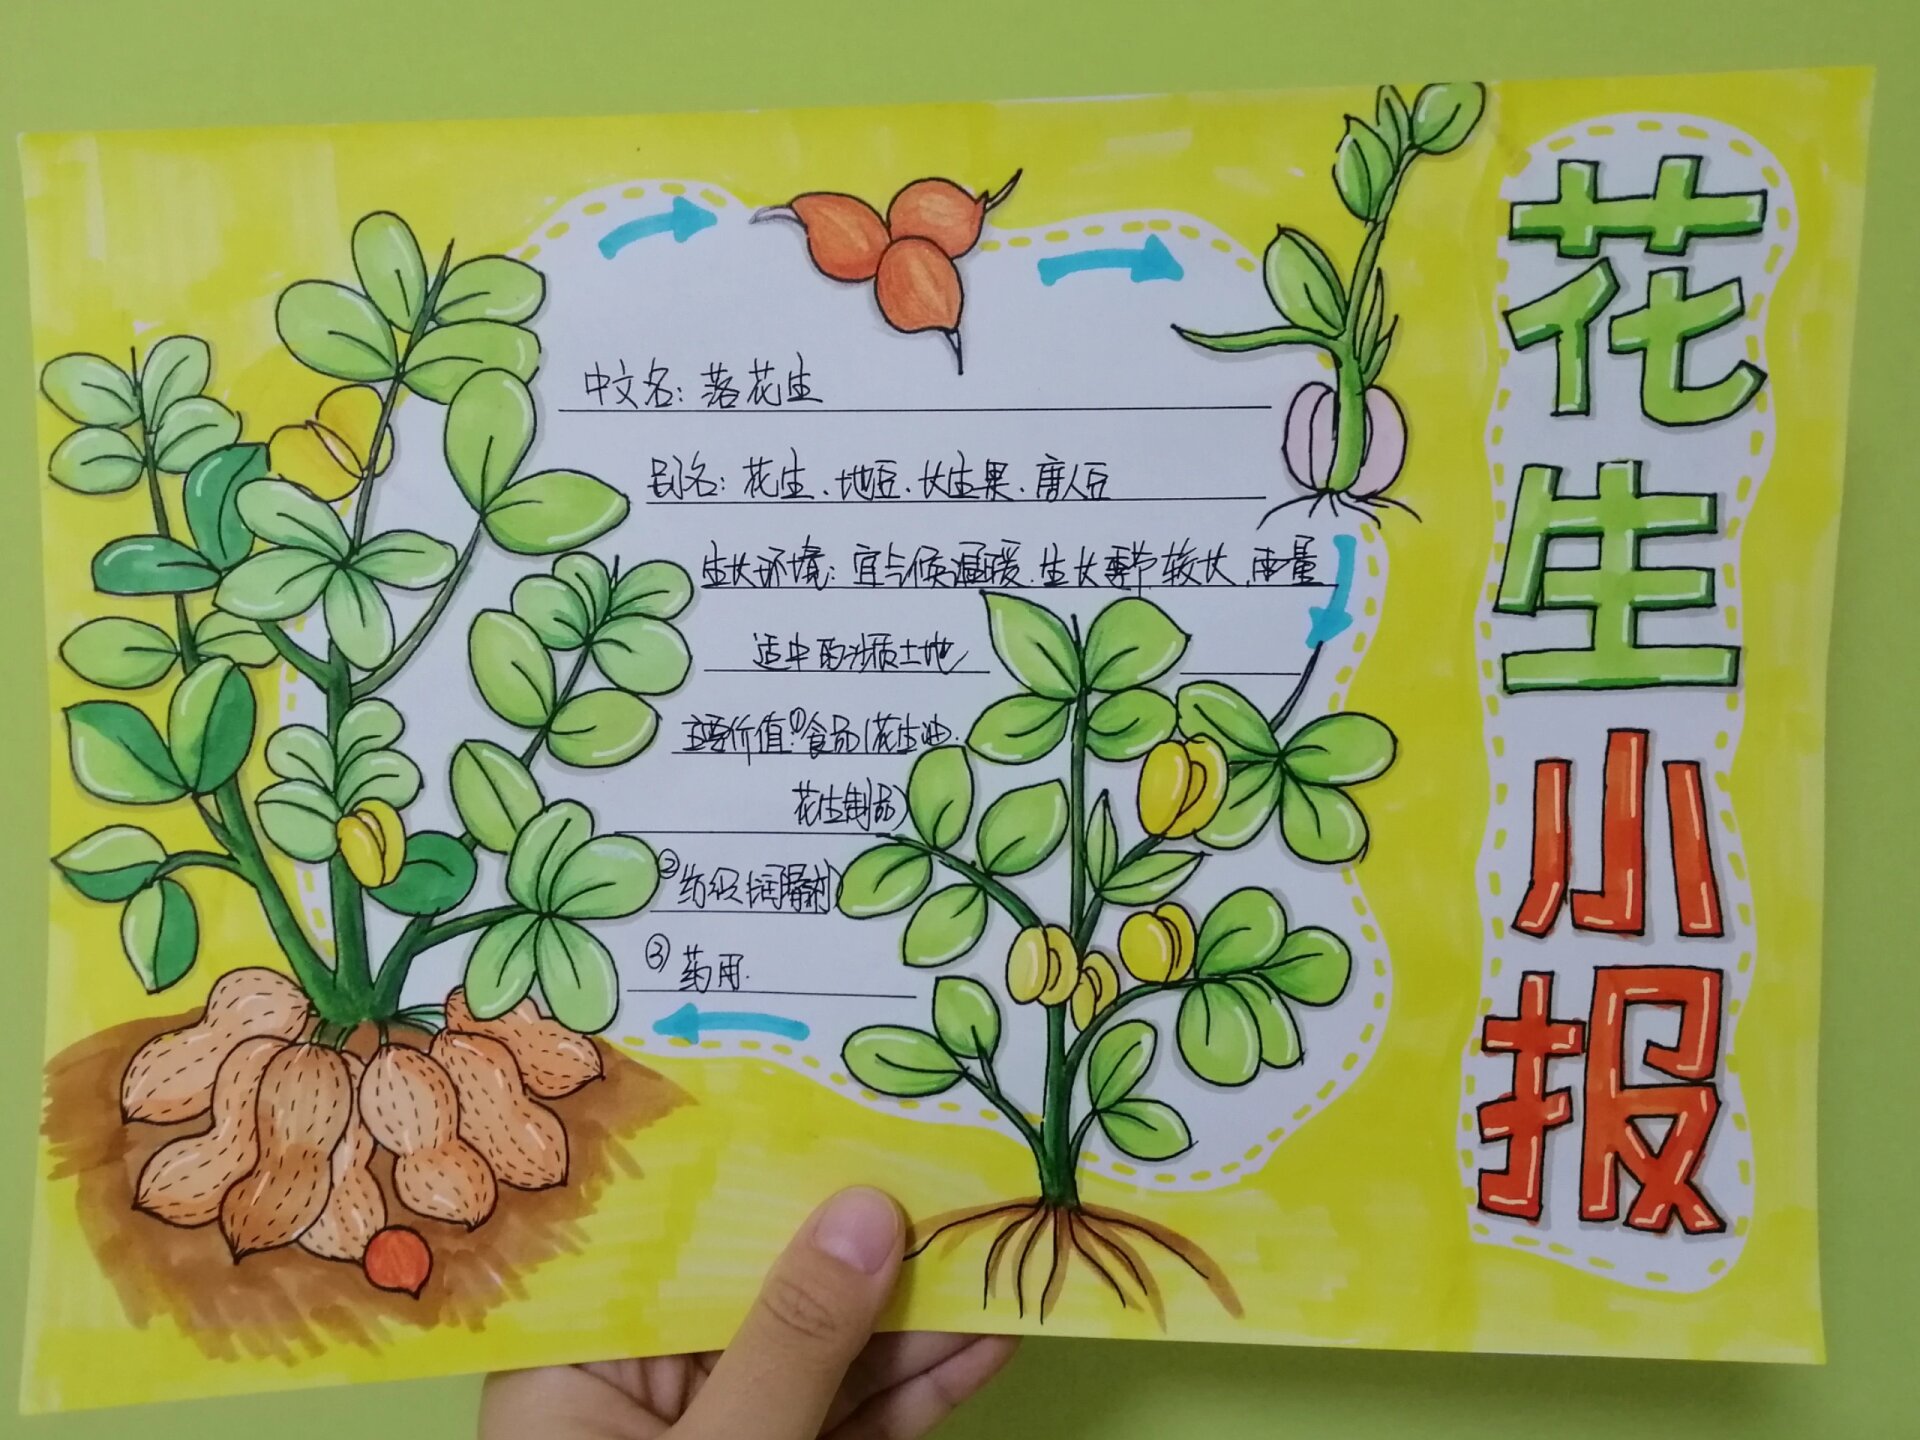 花生小报
中文名：落花生
别名：花生、地豆、长生果、唐人豆
生长环境：宜气候温暖、生长季节较长、雨量
适中的沙质土地
主要价值：①食品(花生油、
花生制品)
②纺织(润滑剂)
③药用.